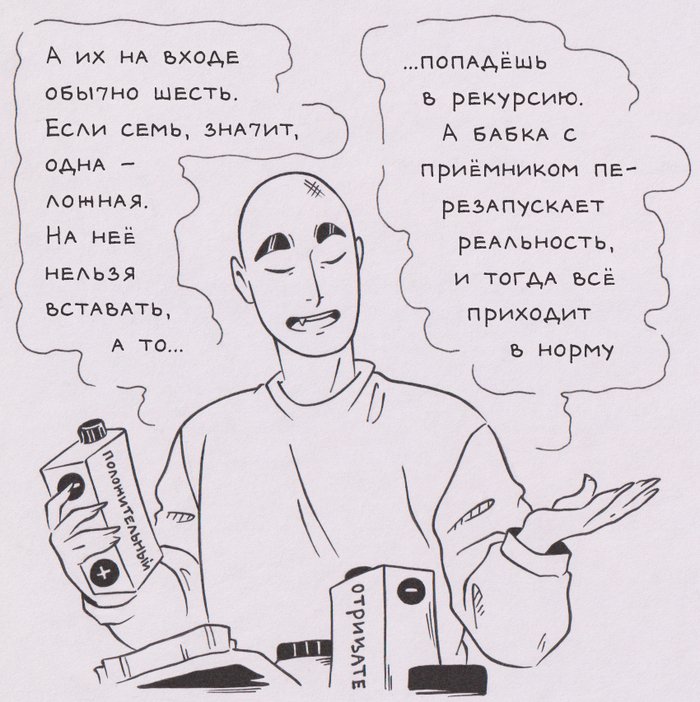 А ИХ НА ВХОДЕ
ОБЫЧНО ШЕСТЬ.
ЕСЛИ СЕМЬ, ЗНАЧИТ,
ОДНА –
ЛОЖНАЯ.
НА НЕЁ
НЕЛЬЗЯ
ВСТАВАТЬ,
А ТО...
...ПОПАДЁШЬ
В РЕКУРСИЮ.
А БАБКА С
ПРИЁМНИКОМ ПЕ-
РЕЗАПУСКАЕТ
РЕАЛЬНОСТЬ,
И ТОГДА ВСЁ
ПРИХОДИТ
В НОРМУ
ПОЛОЖИТЕЛЬНЫЙ
ОТРИЦАТЕ